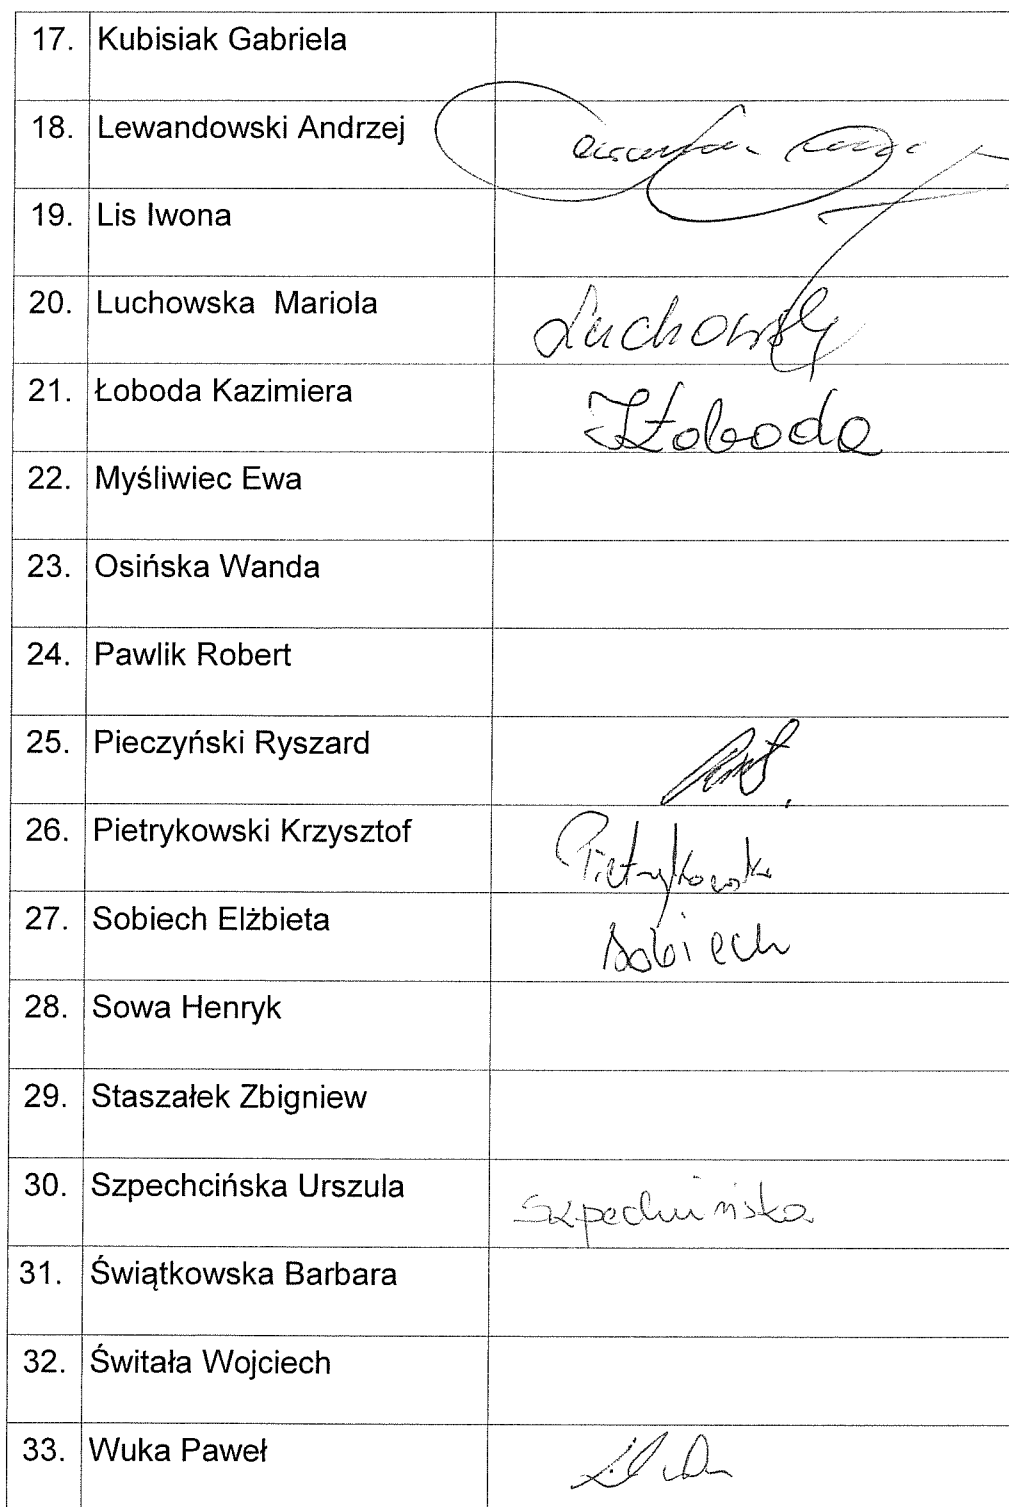 17. Kubisiak Gabriela
18. Lewandowski Andrzej
19. Lis Iwona
20. Luchowska Mariola Luchowska
21. Łoboda Kazimiera Łoboda
22. Myśliwiec Ewa
23. Osińska Wanda
24. Pawlik Robert
25. Pieczyński Ryszard
26. Pietrykowski Krzysztof Pietrykowski
27. Sobiech Elżbieta Sobiech
28. Sowa Henryk
29. Staszałek Zbigniew
30. Szpechcińska Urszula Szpechcińska
31. Świątkowska Barbara
32. Świtała Wojciech
33. Wuka Paweł